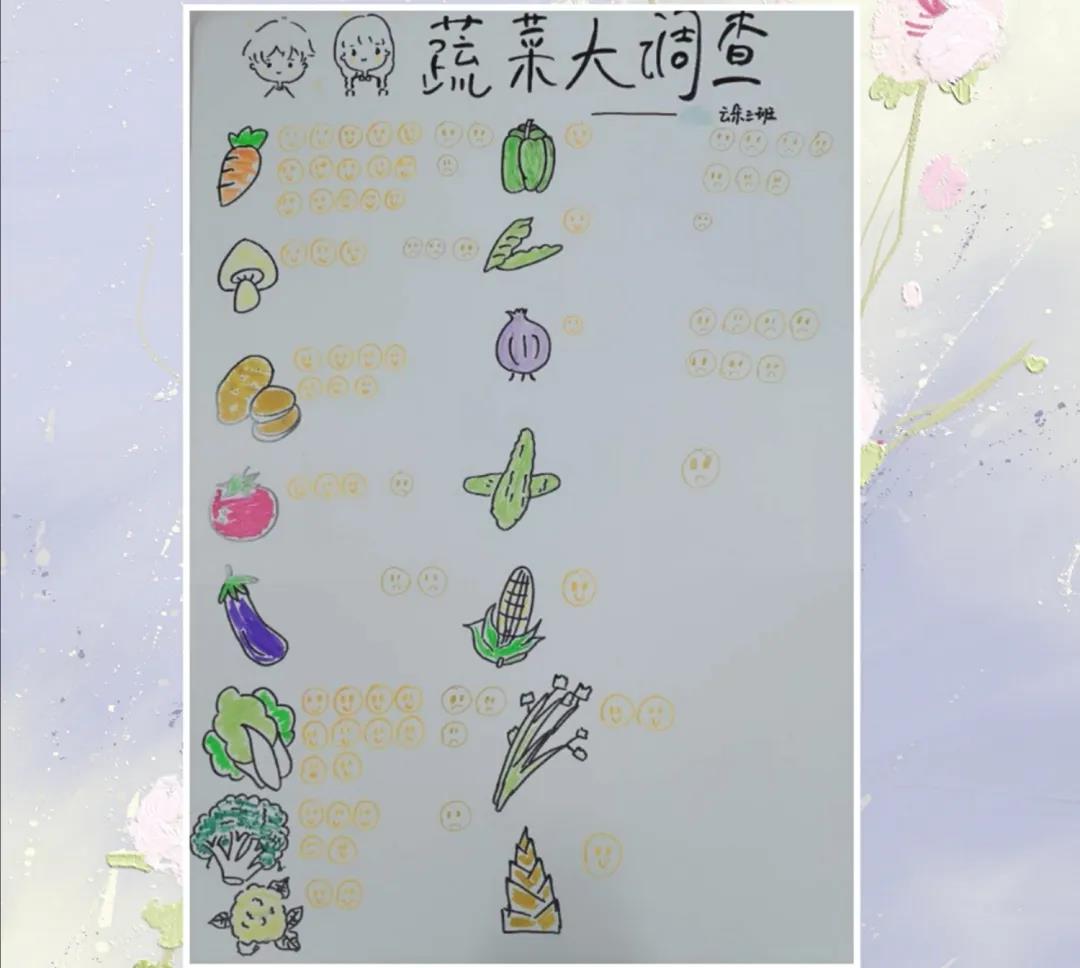 蔬菜大调查
云朵三班